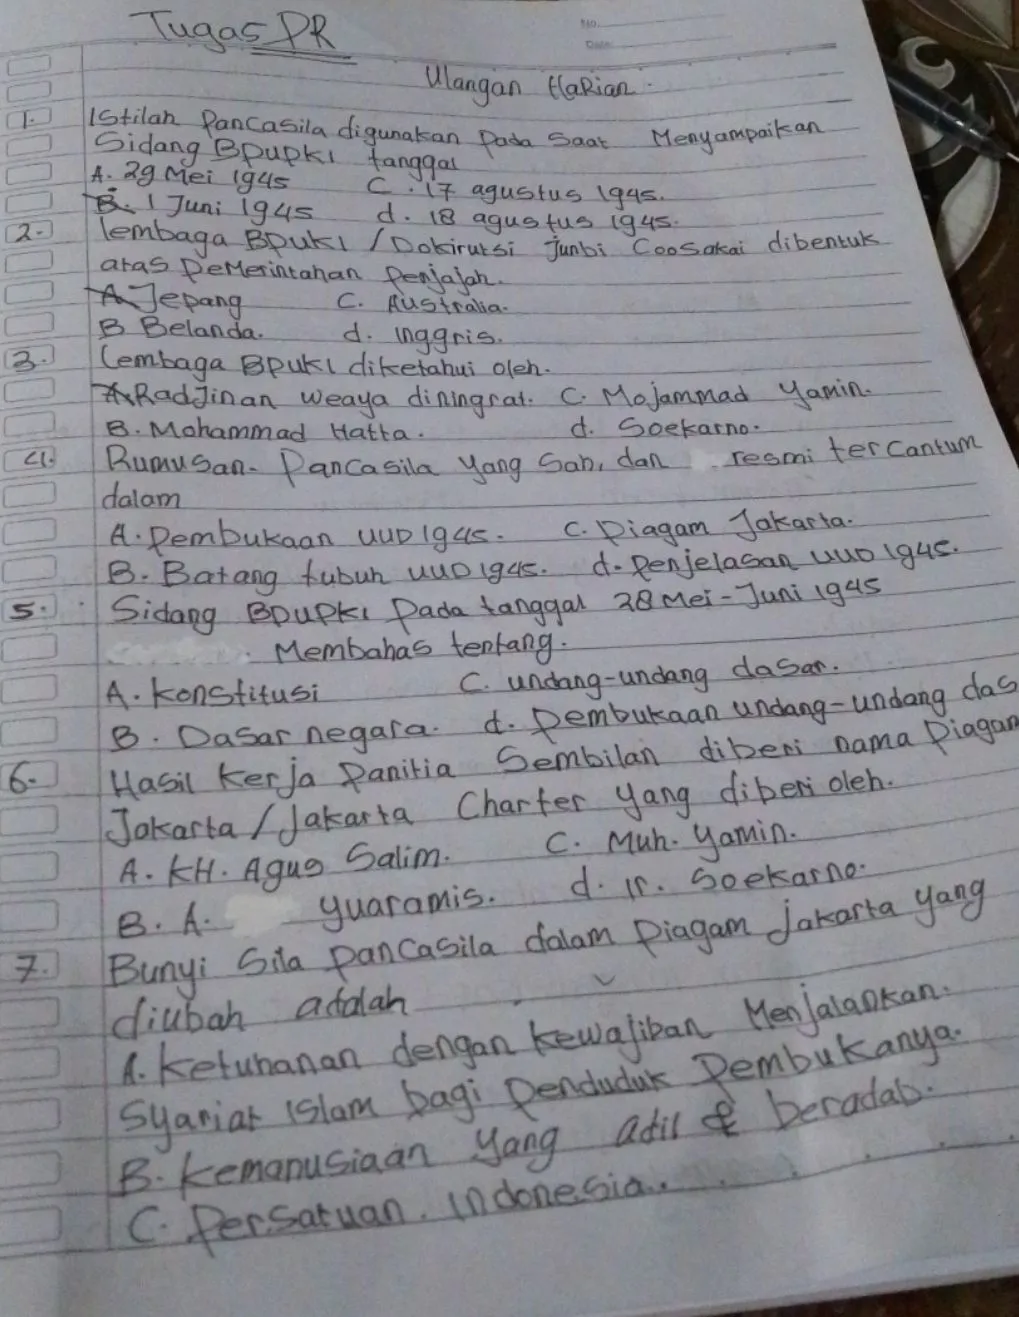 Tugas PR
No.
Date.
Ulangan HaRian.
1. Istilah Pancasila digunakan Pada Saat Menyampaikan
Sidang BPUPKI tanggal
A. 29 Mei 1945 C. 17 agustus 1945.
B. 1 Juni 1945 d. 18 agustus 1945.
2. lembaga BPUKI / Dokirutsi Junbi Coosakai dibentuk
atas PeMerintahan Penjajah.
A Jepang C. Australia.
B Belanda. d. Inggris.
3. Lembaga BPUKI diketahui oleh.
A RadJinan weaya diningrat. C. Mojammad Yamin.
B. Mohammad Hatta. d. Soekarno.
4. Rumusan Pancasila yang Sah, dan resmi terCantum
dalam
A. Pembukaan UUD 1945. C. Piagam Jakarta.
B. Batang tubuh UUD 1945. d. Penjelasan UUD 1945.
5. Sidang BPUPKI Pada tanggal 28 Mei - Juni 1945
Membahas tentang.
A. Konstitusi C. undang-undang dasar.
B. Dasar negara. d. Pembukaan undang-undang das
6. Hasil Kerja Panitia Sembilan diberi nama Piagam
Jakarta / Jakarta Charter yang diberi oleh.
A. KH. Agus Salim. C. Muh. Yamin.
B. A. yuaramis. d. Ir. Soekarno.
7. Bunyi Sila Pancasila dalam Piagam Jakarta yang
diubah adalah
A. Ketuhanan dengan Kewajiban Menjalankan.
Syariat Islam bagi Penduduk Pembukanya.
B. Kemanusiaan yang adil & beradab.
C. Persatuan. Indonesia.